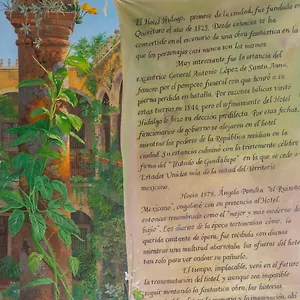 El Hotel Hidalgo, primero de la ciudad, fué fundado en
Querétaro el año de 1825. Desde entonces se ha
convertido en el escenario de una obra fantástica en la
que los personajes casi nunca son los mismos.
Muy interesante fue la estancia del
excéntrico General Antonio López de Santa Anna,
famoso por el pomposo funeral con que honró a su
pierna perdida en batalla. Por razones bélicas visitó
estas tierras en 1844, pero el refinamiento del Hotel
Hidalgo lo hizo su elección predilecta. Por esas fechas,
funcionarios de gobierno se alojaron en el hotel
mientras los poderes de la República residían en la
ciudad. Su estancia culminó con la tristemente célebre
firma del "Tratado de Guadalupe" en la que se cede a
Estados Unidos más de la mitad del territorio
mexicano.
Hacia 1874, Ángela Peralta, "el Ruiseñor
Mexicano", engalanó con su presencia el Hotel,
entonces renombrado como el "mejor y más moderno del
Bajío". Los diarios de la época testimonian cómo la
querida cantante de ópera, fue recibida con dianas
mientras una multitud abarrotaba las afueras del hotel
tan solo para ver ondear su pañuelo.
El tiempo, implacable, verá en el futuro
la transmutación del hotel, y aunque sea imposible
seguir montando la fantástica obra,